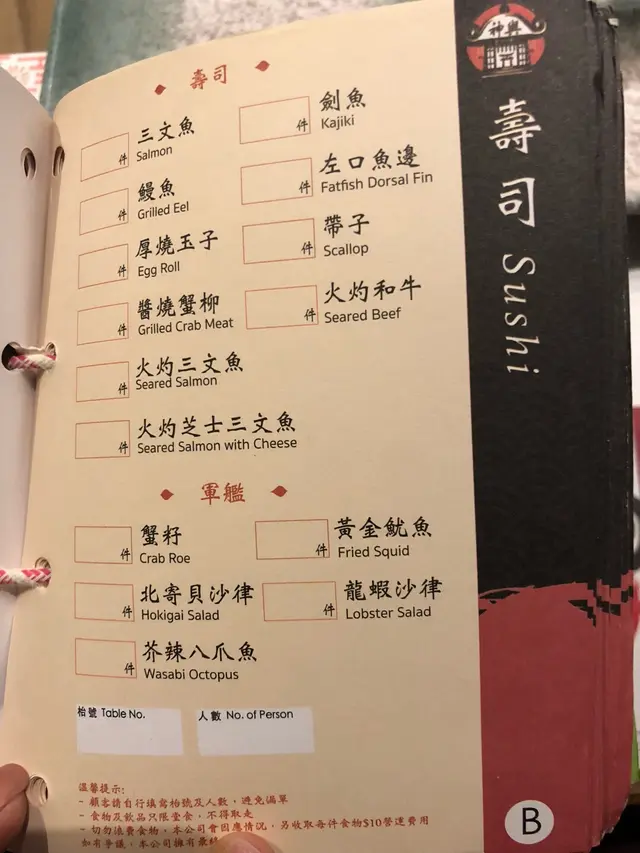 壽司
三文魚
Salmon
件
劍魚
Kajiki
件
鰻魚
Grilled Eel
件
左口魚邊
Fatfish Dorsal Fin
件
厚燒玉子
Egg Roll
件
帶子
Scallop
件
醬燒蟹柳
Grilled Crab Meat
件
火灼和牛
Seared Beef
件
火灼三文魚
Seared Salmon
件
火灼芝士三文魚
Seared Salmon with Cheese
件
軍艦
蟹籽
Crab Roe
件
黃金魷魚
Fried Squid
件
北寄貝沙律
Hokigai Salad
件
龍蝦沙律
Lobster Salad
件
芥辣八爪魚
Wasabi Octopus
件
枱號 Table No.
人數 No. of Person
溫馨提示:
- 顧客請自行填寫枱號及人數，避免漏單
- 食物及飲品只限堂食，不得取走
- 切勿浪費食物，本公司會因應情況，另收取每件食物$10營運費用
如有爭議，本公司擁有最終
神輿
壽司 Sushi
B